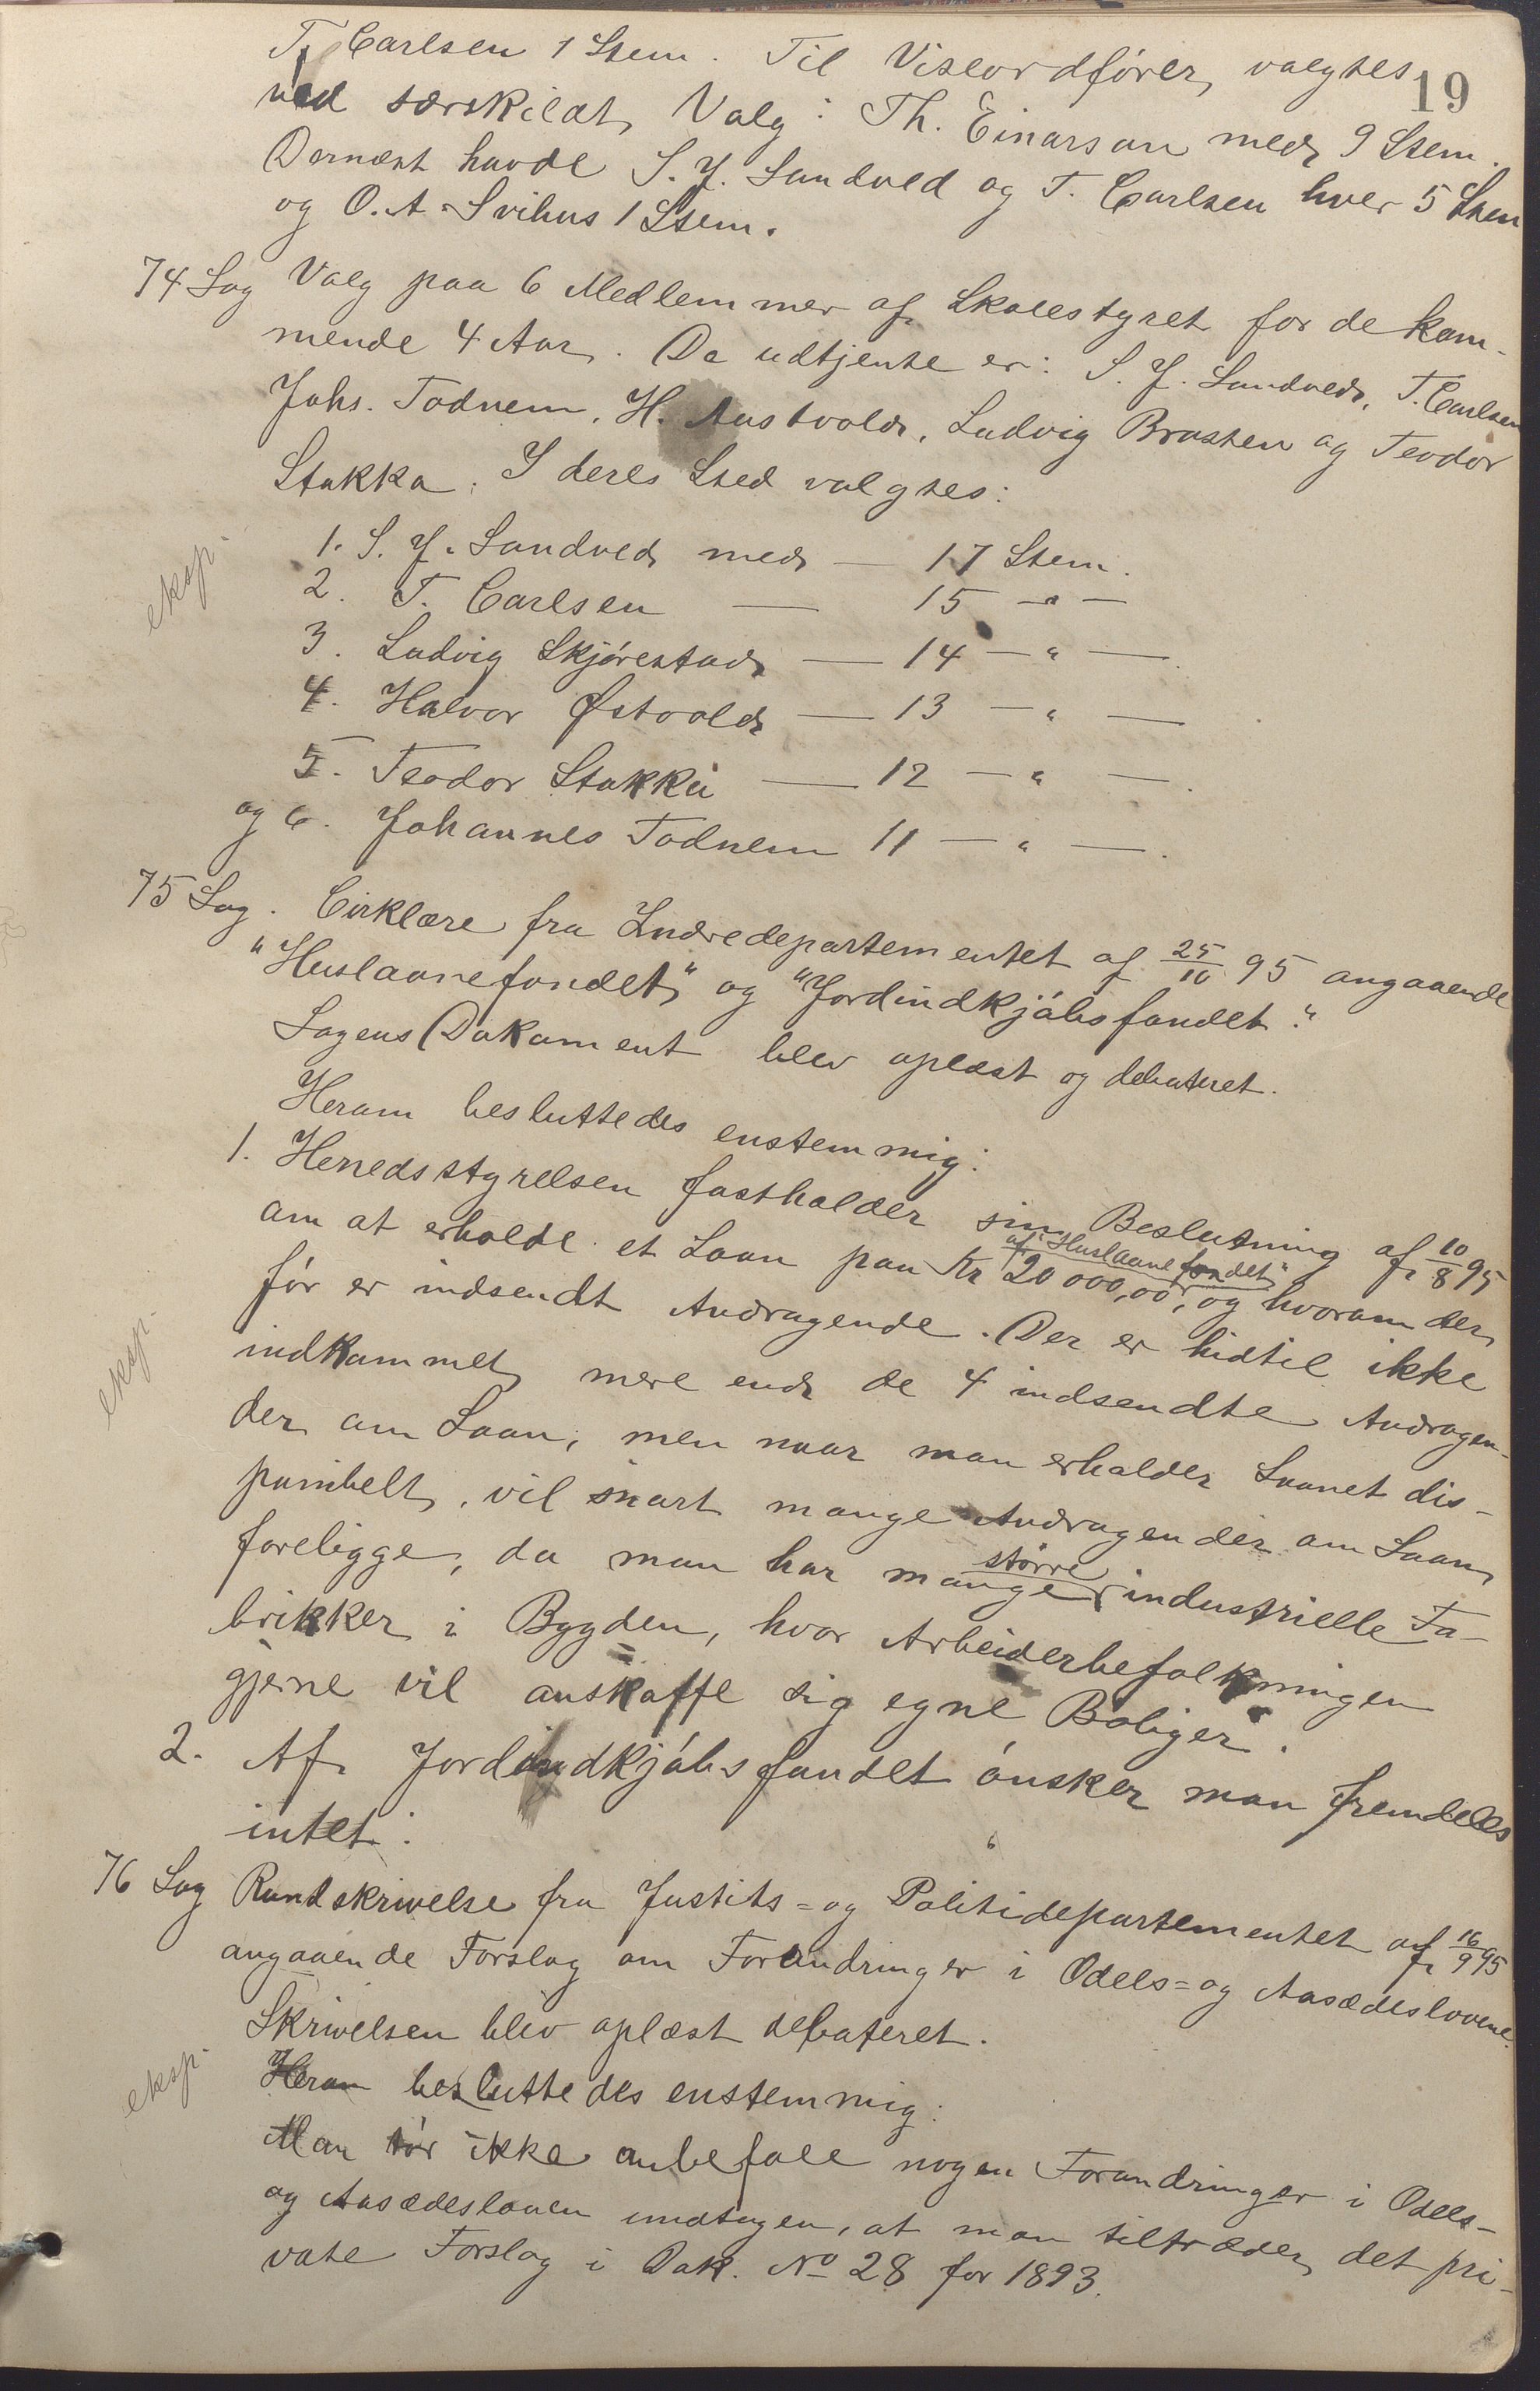 19
T. Carlsen 1 Stem. Til Viseordfører valgtes
ved særskildt Valg: Th. Einarsen med 9 Stem.
Dernæst havde S. J. Sandved og T. Carlsen hver 5 Stem
og O. A. Svihus 1 Stem.
74 Sag Valg paa 6 Medlemmer af Skolestyret for de kom-
mende 4 Aar. De udtjente er: S. J. Sandved, T. Carlsen
Johs. Todnem, H. Austvold, Ludvig Brasten og Teodor
Stokka. I deres Sted valgtes:
eksp.
1. S. J. Sandved med — 17 Stem.
2. T. Carlsen — 15 — " —
3. Ludvig Skjørestad — 14 — " —
4. Halvor Østvold — 13 — " —
5. Teodor Stokka — 12 — " —
og 6. Johannes Todnem 11 — " —
75 Sag. Cirklære fra Indredepartementet af 25/10 95 angaaende
"Huslaanefondet" og "Jordindkjøbsfondet."
Sagens Dokument blev oplæst og debateret.
Herom besluttedes enstemmig:
1. Herredsstyrelsen fastholder sin Beslutning af 10/8 95
af "Huslaanefondet"
om at erholde et Laan paa Kr 20 000,00, og hvorom der
før er indsendt Andragende. Der er hidtil ikke
eksp.
indkommet mere end de 4 indsendte Andragen-
der om Laan, men naar man erholder Laanet dis-
ponibelt, vil snart mange Andragender om Laan
større
foreligge, da man har mange industrielle Fa-
brikker i Bygden, hvor Arbeiderbefolkningen
gjerne vil anskaffe sig egne Boliger.
2. Af Jordindkjøbsfondet ønsker man fremdeles
intet.
76 Sag Rundskrivelse fra Justits- og Politidepartementet af 16/9 95
angaaende Forslag om Forandringer i Odels- og Aasædeslovene.
Skrivelsen blev oplæst debateret.
eksp.
Herom besluttedes enstemmig:
Man tør ikke anbefale nogen Forandringer i Odels-
og Aasædesloven undtagen, at man tiltræder det pri-
vate Forslag i Dok. No 28 for 1893.